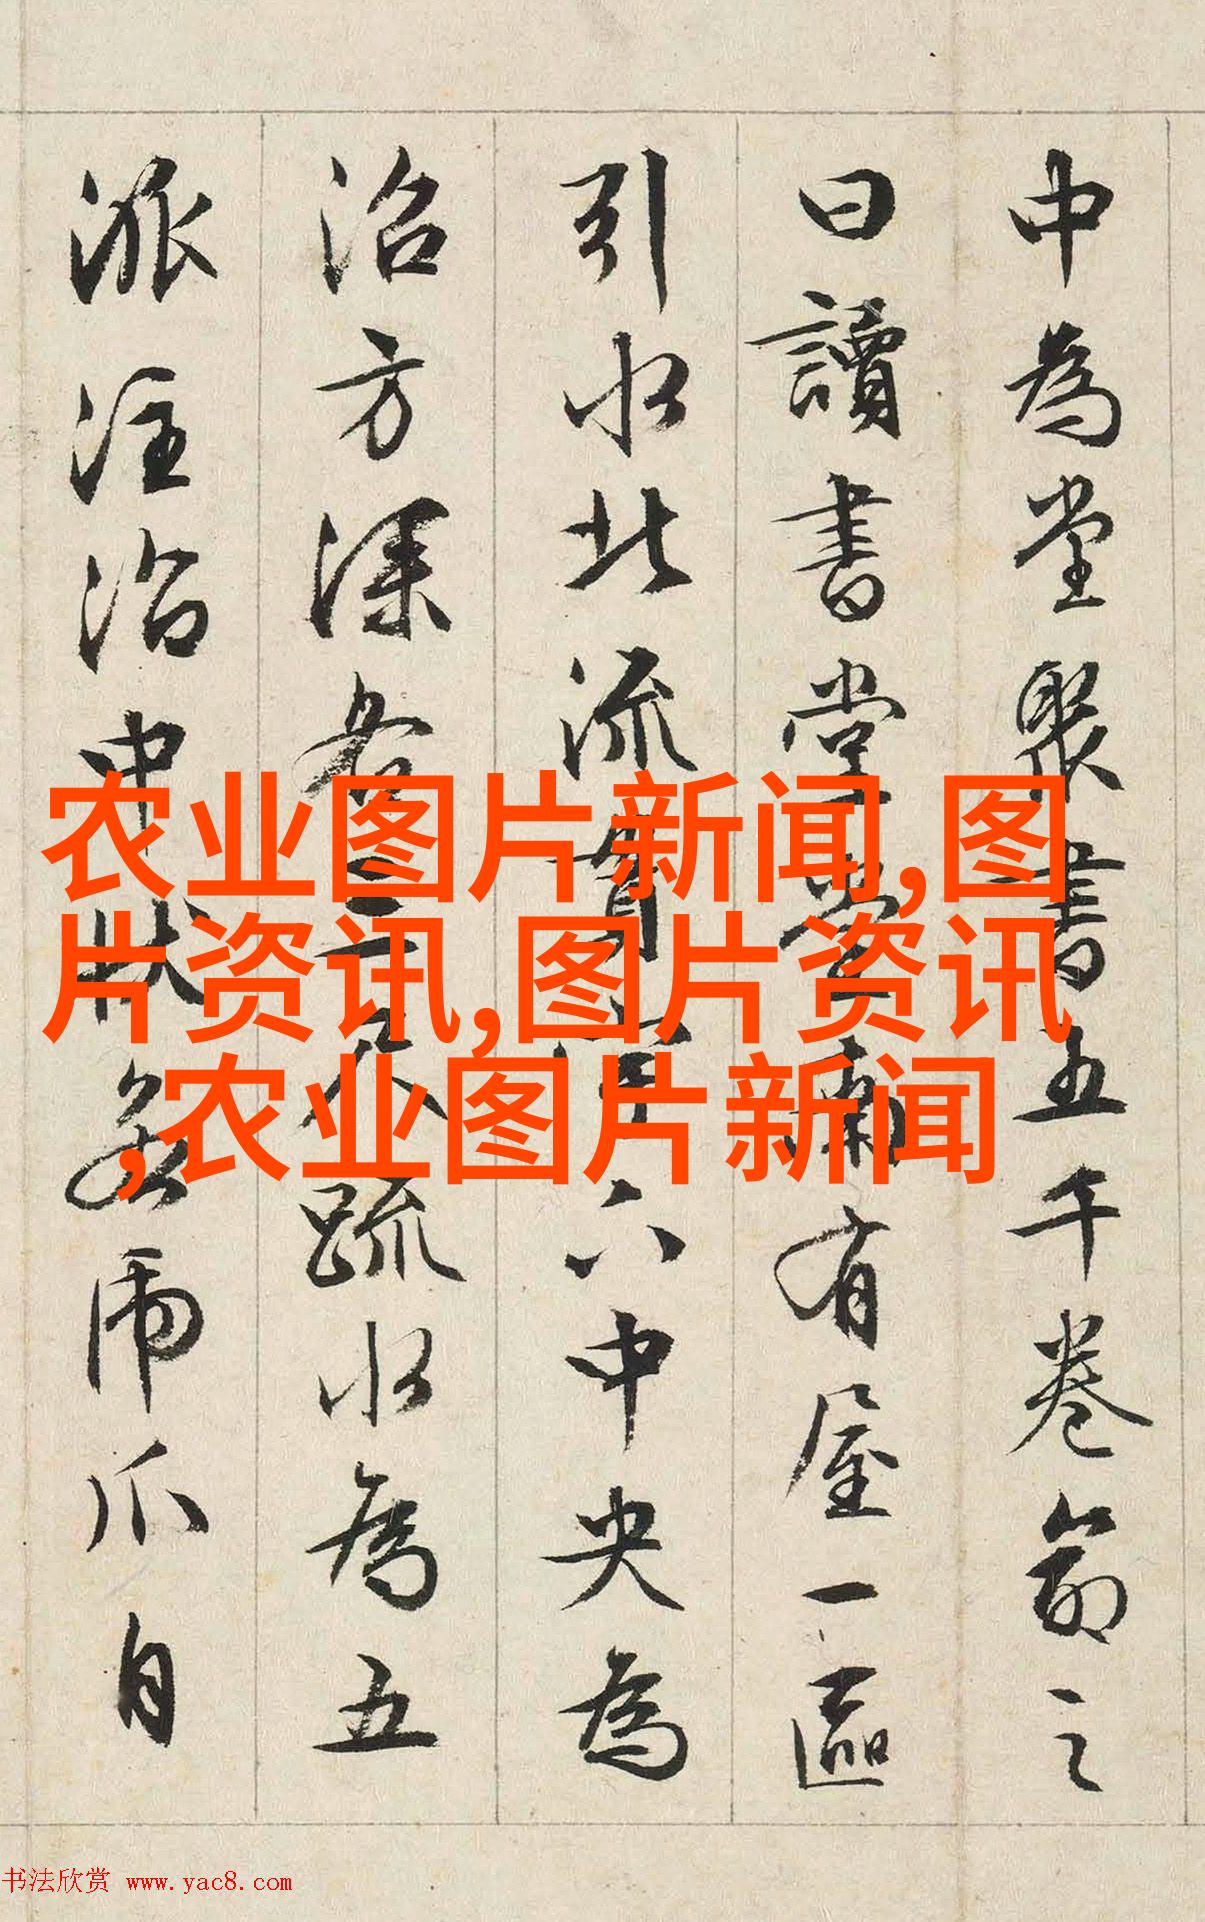 中為堂聚書五千卷命之
曰讀書堂堂南有屋一區
引水北流貫宇下中央為
沼方深各三尺疏水為五
派注沼中狀若虎爪自
农业图片新闻,图
片资讯,图片资讯
,农业图片新闻
书法欣赏 www.yac8.com